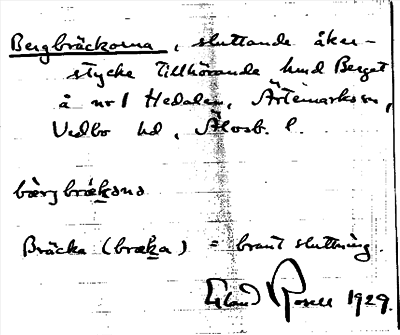 Bergbräckorna, sluttande åker-
stycke tillhörande hmd Berget
å nr 1 Hedalen, Ärtemarks sn,
Vedbo hd, Älvsb. l.
bærjbræ̱kɔnɔ
Bräcka (bræka) = brant sluttning.
Erland Rosell 1929.